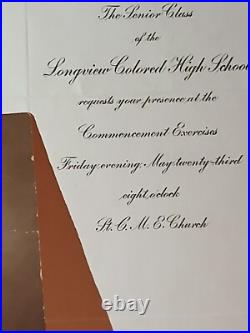 The Senior Class
of the
Longview Colored High School
requests your presence at the
Commencement Exercises
Friday evening, May twenty-third
eight o'clock
St. C. M. E. Church
www.collectibles